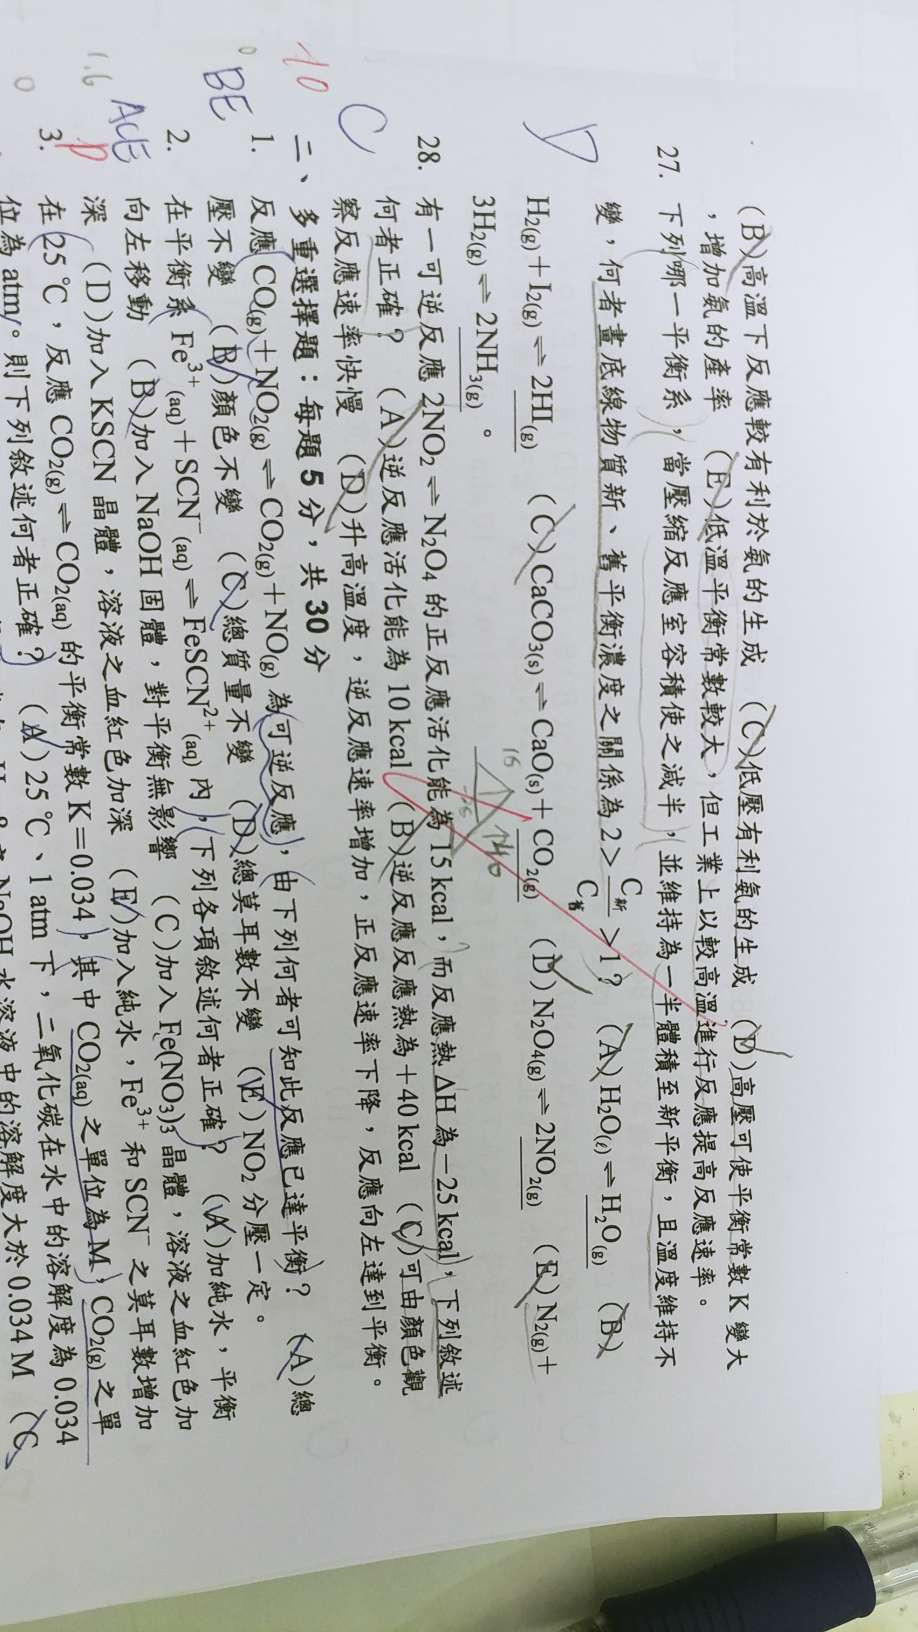 (B)高溫下反應較有利於氨的生成 (C)低壓有利氨的生成 (D)高壓可使平衡常數 K 變大
，增加氨的產率 (E)低溫平衡常數較大，但工業上以較高溫進行反應提高反應速率。
27. 下列哪一平衡系，當壓縮反應室容積使之減半，並維持為一半體積至新平衡，且溫度維持不
變，何者畫底線物質新、舊平衡濃度之關係為 2 > C新/C舊 > 1？ (A) H₂O(ℓ) ⇌ H₂O(g) (B)
D
H₂(g) + I₂(g) ⇌ 2HI(g) (C) CaCO₃(s) ⇌ CaO(s) + CO₂(g) (D) N₂O₄(g) ⇌ 2NO₂(g) (E) N₂(g) +
3H₂(g) ⇌ 2NH₃(g)。
28. 有一可逆反應 2NO₂ ⇌ N₂O₄ 的正反應活化能為 15 kcal，而反應熱 ΔH 為 −25 kcal，下列敘述
何者正確？ (A)逆反應活化能為 10 kcal (B)逆反應反應熱為 +40 kcal (C)可由顏色觀
C
察反應速率快慢 (D)升高溫度，逆反應速率增加，正反應速率下降，反應向左達到平衡。
10
二、多重選擇題：每題 5 分，共 30 分
1. 反應 CO(g) + NO₂(g) ⇌ CO₂(g) + NO(g) 為可逆反應，由下列何者可知此反應已達平衡？ (A)總
BE
壓不變 (B)顏色不變 (C)總質量不變 (D)總莫耳數不變 (E) NO₂ 分壓一定。
2. 在平衡系 Fe³⁺(aq) + SCN⁻(aq) ⇌ FeSCN²⁺(aq) 內，下列各項敘述何者正確？ (A)加純水，平衡
向左移動 (B)加入 NaOH 固體，對平衡無影響 (C)加入 Fe(NO₃)₃ 晶體，溶液之血紅色加
深 (D)加入 KSCN 晶體，溶液之血紅色加深 (E)加入純水，Fe³⁺ 和 SCN⁻ 之莫耳數增加
3. 在 25 °C，反應 CO₂(g) ⇌ CO₂(aq) 的平衡常數 K＝0.034，其中 CO₂(aq) 之單位為 M，CO₂(g) 之單
位為 atm。則下列敘述何者正確？ (A) 25 °C、1 atm 下，二氧化碳在水中的溶解度為 0.034
NaOH 水溶液中的溶解度大於 0.034 M (C